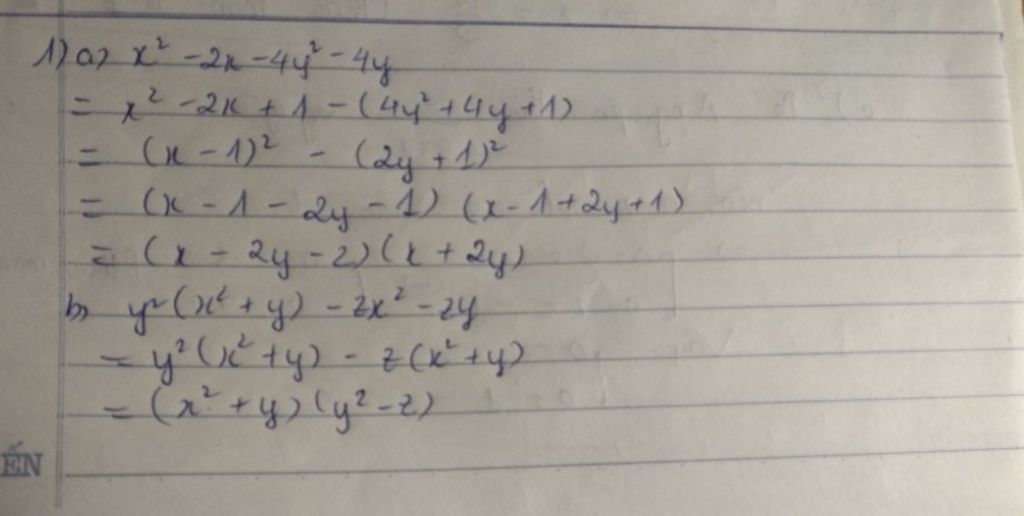 1) a) x² - 2x - 4y² - 4y
= x² - 2x + 1 - (4y² + 4y + 1)
= (x - 1)² - (2y + 1)²
= (x - 1 - 2y - 1) (x - 1 + 2y + 1)
= (x - 2y - 2) (x + 2y)
b) y² (x² + y) - zx² - zy
= y² (x² + y) - z (x² + y)
= (x² + y) (y² - z)
ÉN